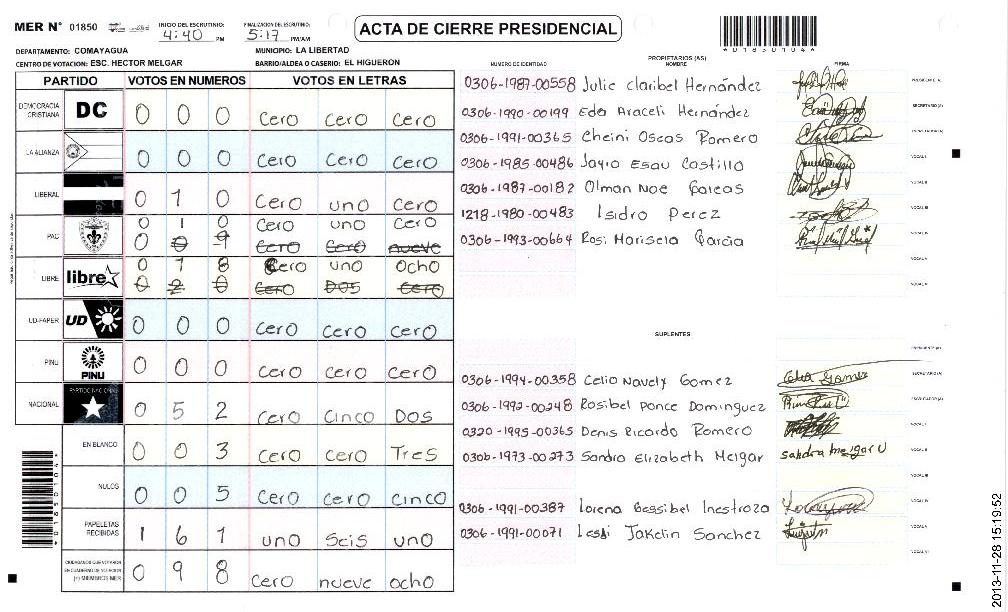 MER N° 01850 INICIO DEL ESCRUTINIO: 4:40 PM FINALIZACION DEL ESCRUTINIO: 5:17 PM/AM ACTA DE CIERRE PRESIDENCIAL
DEPARTAMENTO: COMAYAGUA MUNICIPIO: LA LIBERTAD
CENTRO DE VOTACION: ESC. HECTOR MELGAR BARRIO/ALDEA O CASERIO: EL HIGUERON
PARTIDO VOTOS EN NUMEROS VOTOS EN LETRAS
DEMOCRACIA CRISTIANA DC 0 0 0 Cero Cero Cero
LA ALIANZA 0 0 0 Cero Cero Cero
LIBERAL 0 1 0 Cero uno Cero
PAC 0 1 0 Cero uno Cero
0 0 9 Cero Cero nueve
LIBRE libre 0 1 8 Cero uno Ocho
0 2 0 Cero Dos Cero
UD-FAPER UD 0 0 0 Cero Cero Cero
PINU PINU 0 0 0 Cero Cero Cero
NACIONAL PARTIDO NACIONAL 0 5 2 Cero Cinco Dos
EN BLANCO 0 0 3 Cero Cero Tres
NULOS 0 0 5 Cero Cero Cinco
PAPELETAS RECIBIDAS 1 6 1 uno Seis uno
CIUDADANOS QUE VOTARON EN CUADERNO DE VOTACION (+) MIEMBROS MER 0 9 8 Cero nueve ocho
PROPIETARIOS (AS)
NUMERO DE IDENTIDAD NOMBRE FIRMA
0306-1987-00558 Julie Claribel Hernández PRESIDENTE (A)
0306-1990-00199 Eda Araceli Hernández SECRETARIO (A)
0306-1991-00365 Cheini Oscas Romero ESCRUTADOR (A)
0306-1985-00486 Jayro Esau Castillo VOCAL I
0306-1987-00182 Olman Noe Galeas VOCAL II
1218-1980-00483 Isidro Perez VOCAL III
0306-1993-00664 Rosi Marisela Garcia VOCAL IV
VOCAL V
VOCAL VI
SUPLENTES
PRESIDENTE (A)
0306-1994-00358 Celio Navely Gomez Celia Gomez SECRETARIO (A)
0306-1992-00248 Rosibel Ponce Dominguez ESCRUTADOR (A)
0320-1995-00365 Denis Ricardo Romero VOCAL I
0306-1973-00273 Sandra Elizabeth Melgar Sandra melgar U VOCAL II
VOCAL III
0306-1991-00387 Lorena Gessibel Inestroza VOCAL IV
0306-1991-00071 Lesbi Jakelin Sanchez VOCAL V
VOCAL VI
2013-11-28 15:19:52